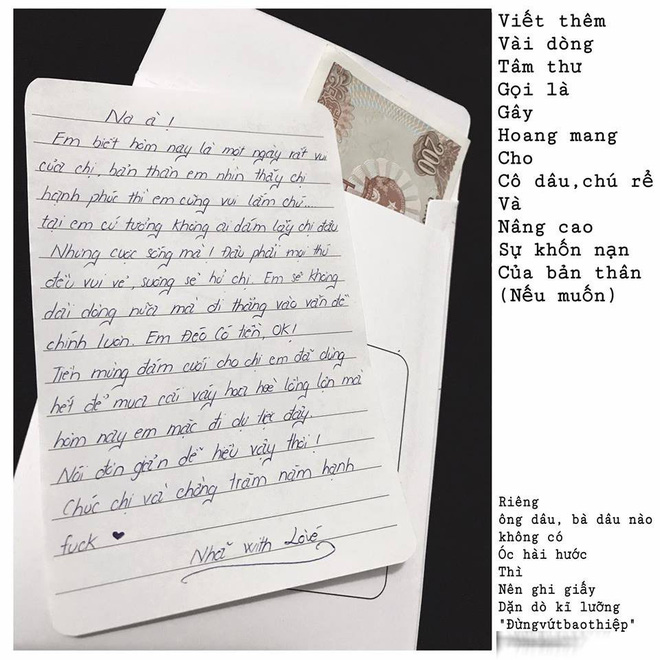 Na à!
Em biết hôm nay là một ngày rất vui
của chị, bản thân em nhìn thấy chị
hạnh phúc thì em cũng vui lắm chứ...
tại em cứ tưởng không ai dám lấy chị đâu
Nhưng cuộc sống mà! Đâu phải mọi thứ
đều vui vẻ, sướng sẽ hở chị. Em sẽ không
dài dòng nữa mà đi thẳng vào vấn đề
chính luôn. Em Đéo Có tiền, OK!
Tiền mừng đám cưới cho chị em đã dùng
hết để mua cái váy hoa hoè lồng lộn mà
hôm nay em mặc đi dự tiệc đây.
Nói đơn giản dễ hểu vậy thôi!
Chúc chị và chồng trăm năm hạnh
fuck ♥
Nhã with Love
200
Viết thêm
Vài dòng
Tâm thư
Gọi là
Gây
Hoang mang
Cho
Cô dâu,chú rể
Và
Nâng cao
Sự khốn nạn
Của bản thân
(Nếu muốn)
Riêng
ông dâu, bà dâu nào
không có
Óc hài hước
Thì
Nên ghi giấy
Dặn dò kĩ lưỡng
"Đừngvứtbaothiệp"